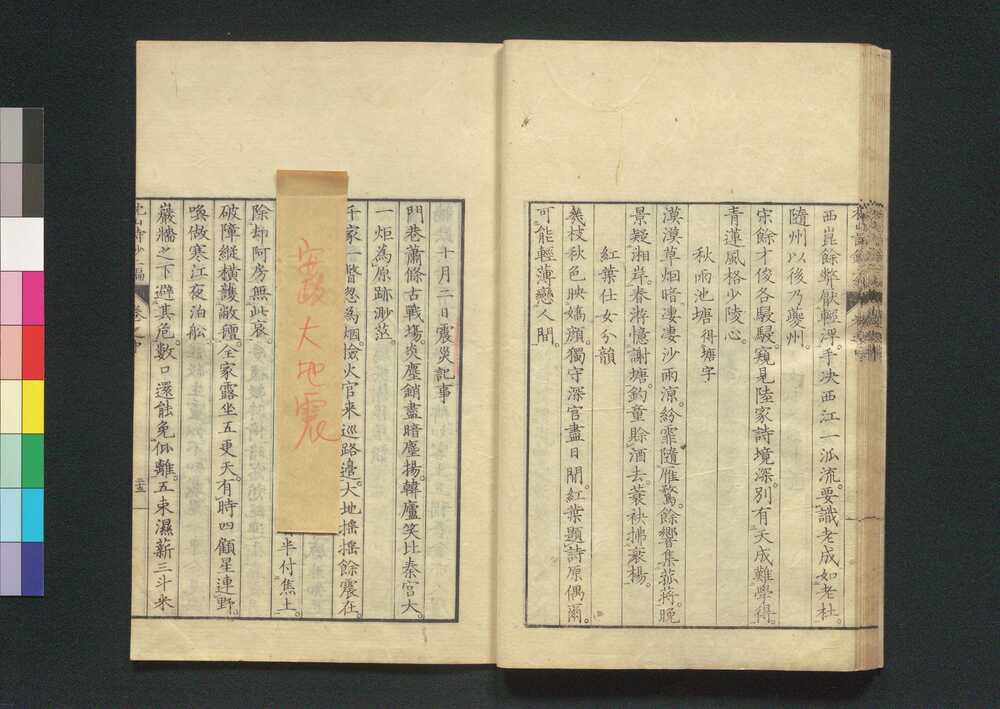 西崑餘弊猒輕浮。手决西江一派流。要識老成如老杜。
隨州以後乃夔州。
宋餘才俊各駸駸。窺見陸家詩境深。別有天成難學得。
青蓮風格少陵心。
秋雨池塘 得塘字
漠漠草烟暗。凄凄沙雨涼。紛霏隨雁鶩。餘響集菰蔣。晚
景疑湘岸。春游憶謝塘。釣童賖酒去。蓑袂拂衰楊。
紅葉仕女分韻
幾枝秋色映嬌顏。獨守深宮盡日閒。紅葉題詩原偶爾。
可能輕薄戀人間。
十月二日震災記事
門巷蕭條古戰塲。炎塵銷盡暗塵揚。韓廬笑比秦宮大。
一炬為原跡渺茫。
千家一瞥忽為烟。撿火官来巡路邊。大地揺揺餘震在。
安政大地震
半付焦土。
除却阿房無此哀。
破障縱橫護敝氊。全家露坐五更天。有時四顧星連野。
喚做寒江夜泊舩。
巖牆之下避其危。數口還能免仳離。五束濕薪三斗米
枕山詩鈔二編
卷之中
二十五